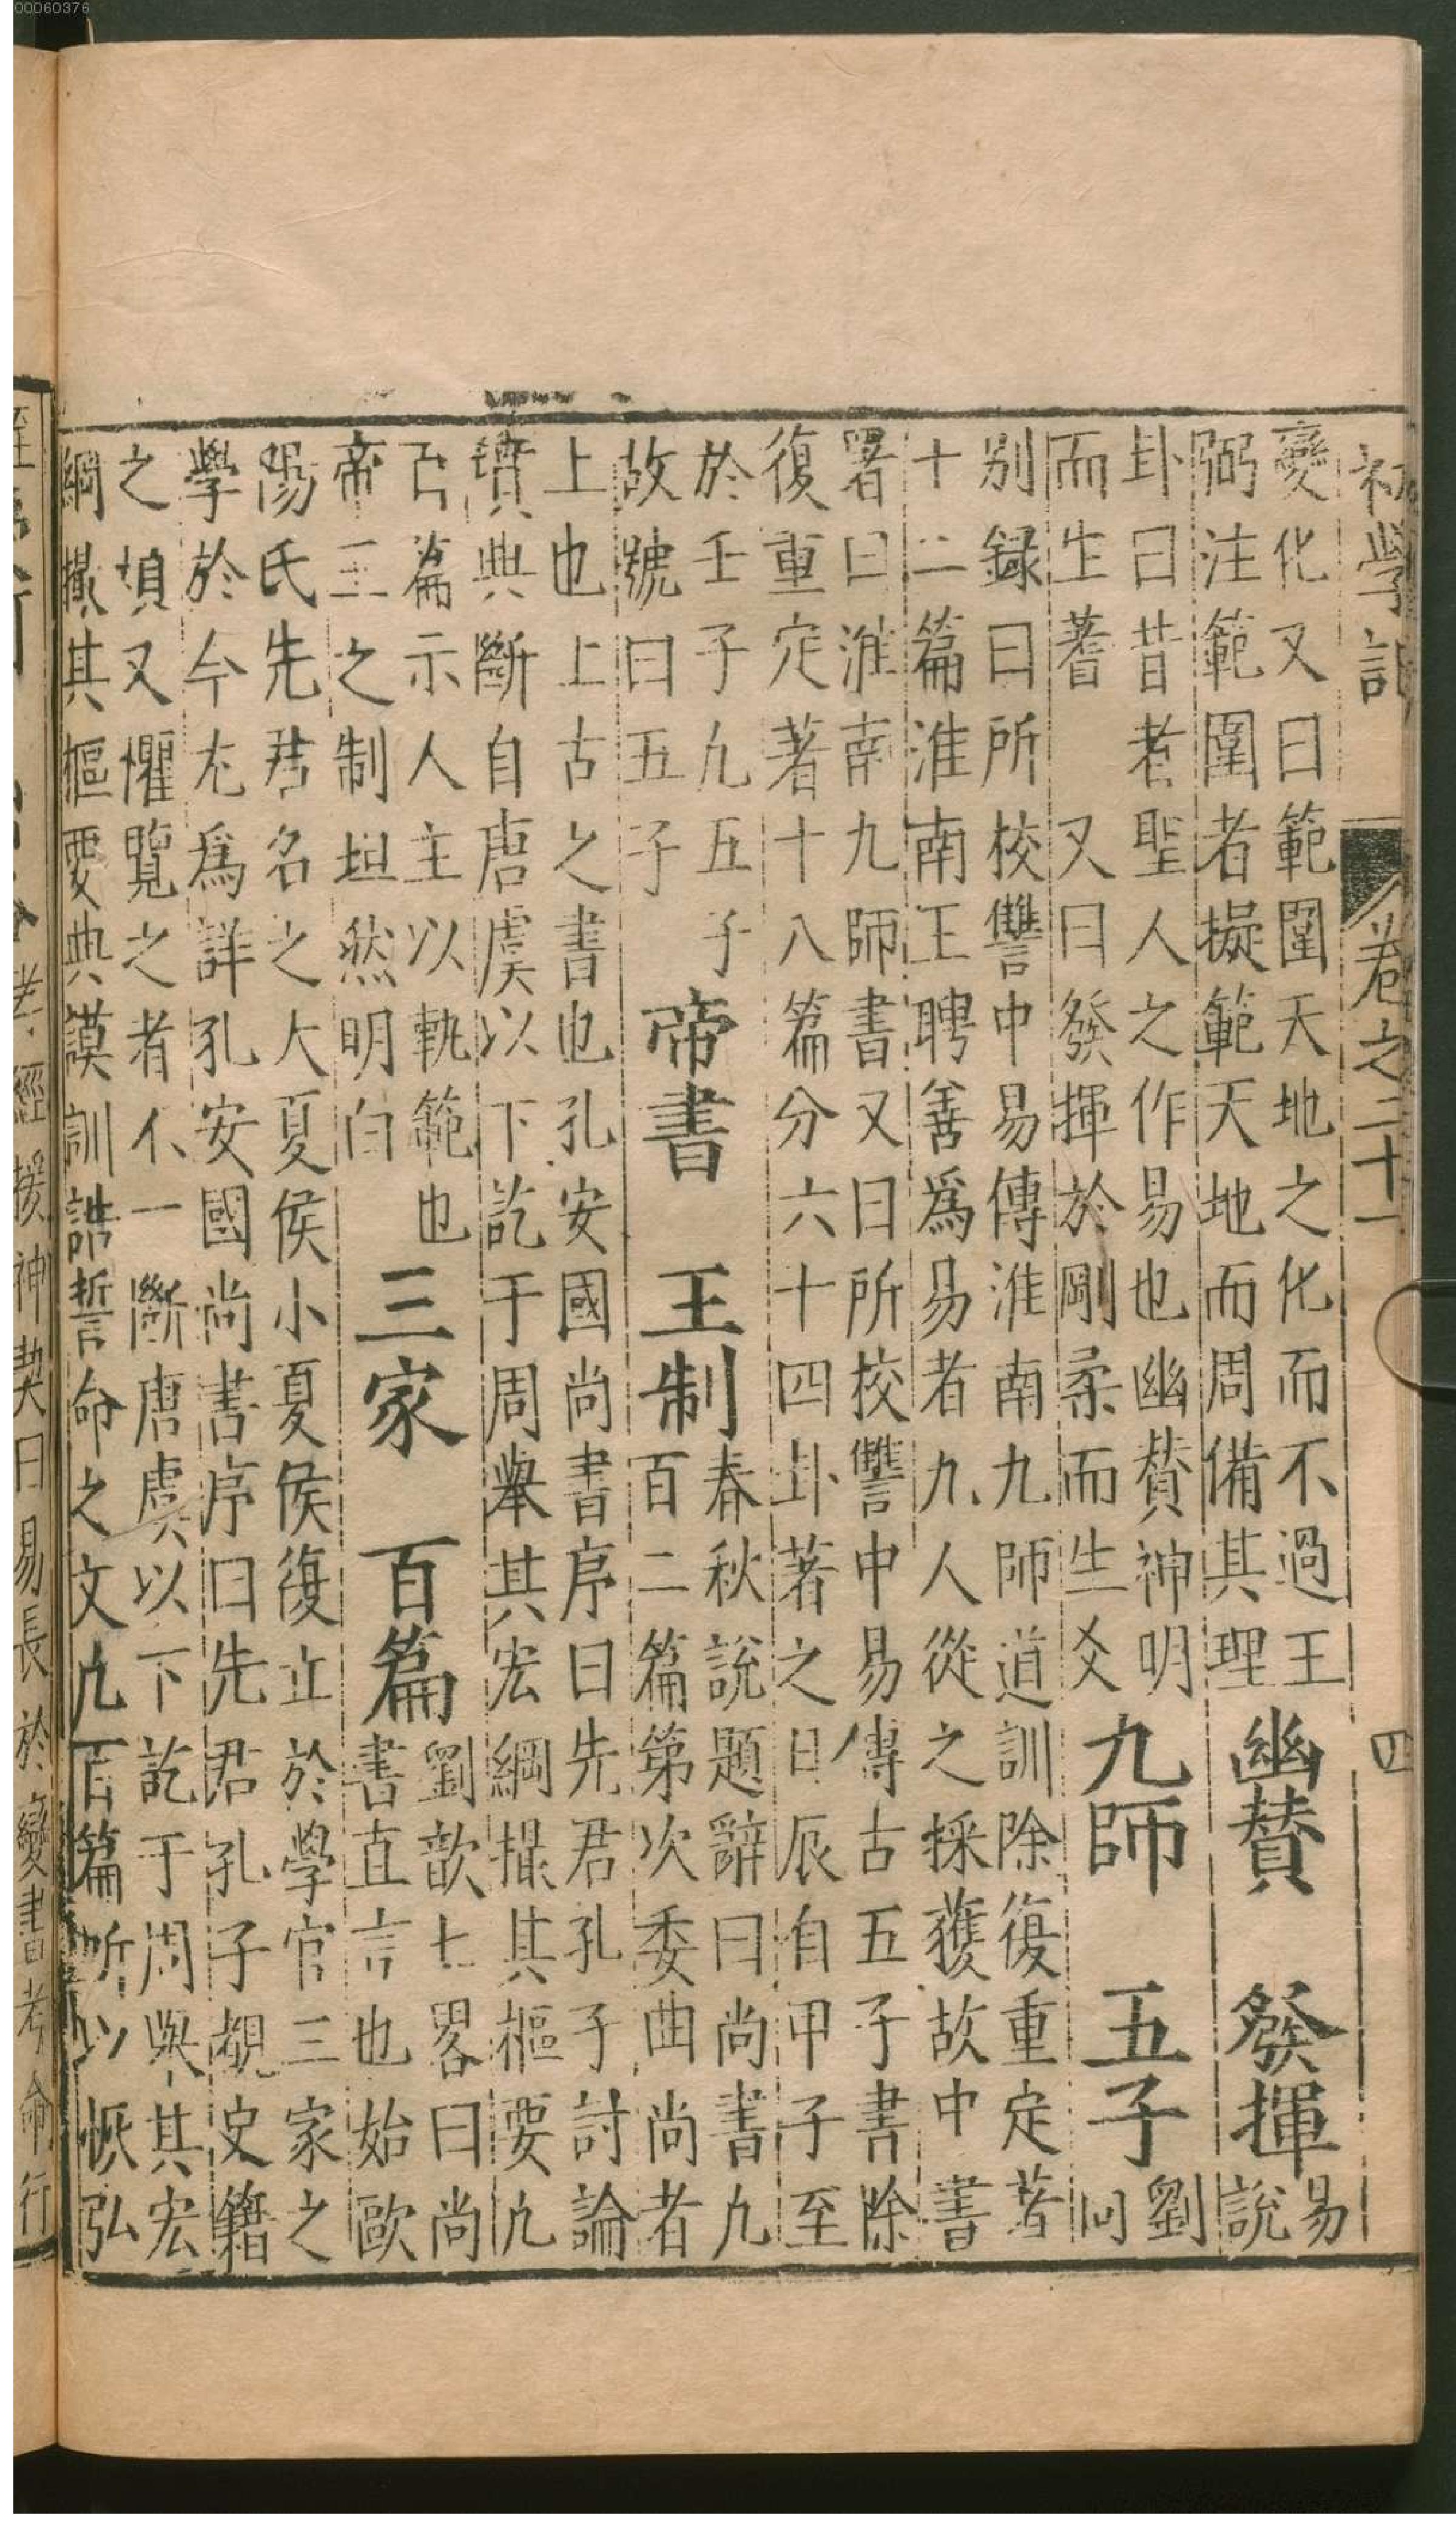 00060376
初學記 卷之二十一 四
變化又曰範圍天地之化而不過王
弼注範圍者擬範天地而周備其理
幽贊 發揮
易
說
卦曰昔者聖人之作易也幽贊神明
而生蓍 又曰發揮於剛柔而生爻
九師 五子
劉
向
別録曰所校讐中易傳淮南九師道訓除復重定著
十二篇淮南王聘善爲易者九人從之採獲故中書
署曰淮南九師書又曰所校讐中易傳古五子書除
復重定著十八篇分六十四卦著之日辰自甲子至
於壬子九五子
故號曰五子
帝書 王制
春秋說題辭曰尚書九
百二篇第次委曲尚者
上也上古之書也孔安國尚書序曰先君孔子討論
墳典斷自唐虞以下訖于周舉其宏綱撮其樞要九
百篇示人主以軌範也
帝王之制坦然明白
三家 百篇
劉歆七畧曰尚
書直言也始歐
陽氏先君名之大夏侯小夏侯復立於學官三家之
學於今尤爲詳孔安國尚書序曰先君孔子覩史籍
之煩又懼覽之者不一斷唐虞以下訖于周舉其宏
綱撮其樞要典謨訓誥誓命之文九百篇所以恢弘
孝經援神契曰易長於變書考命行